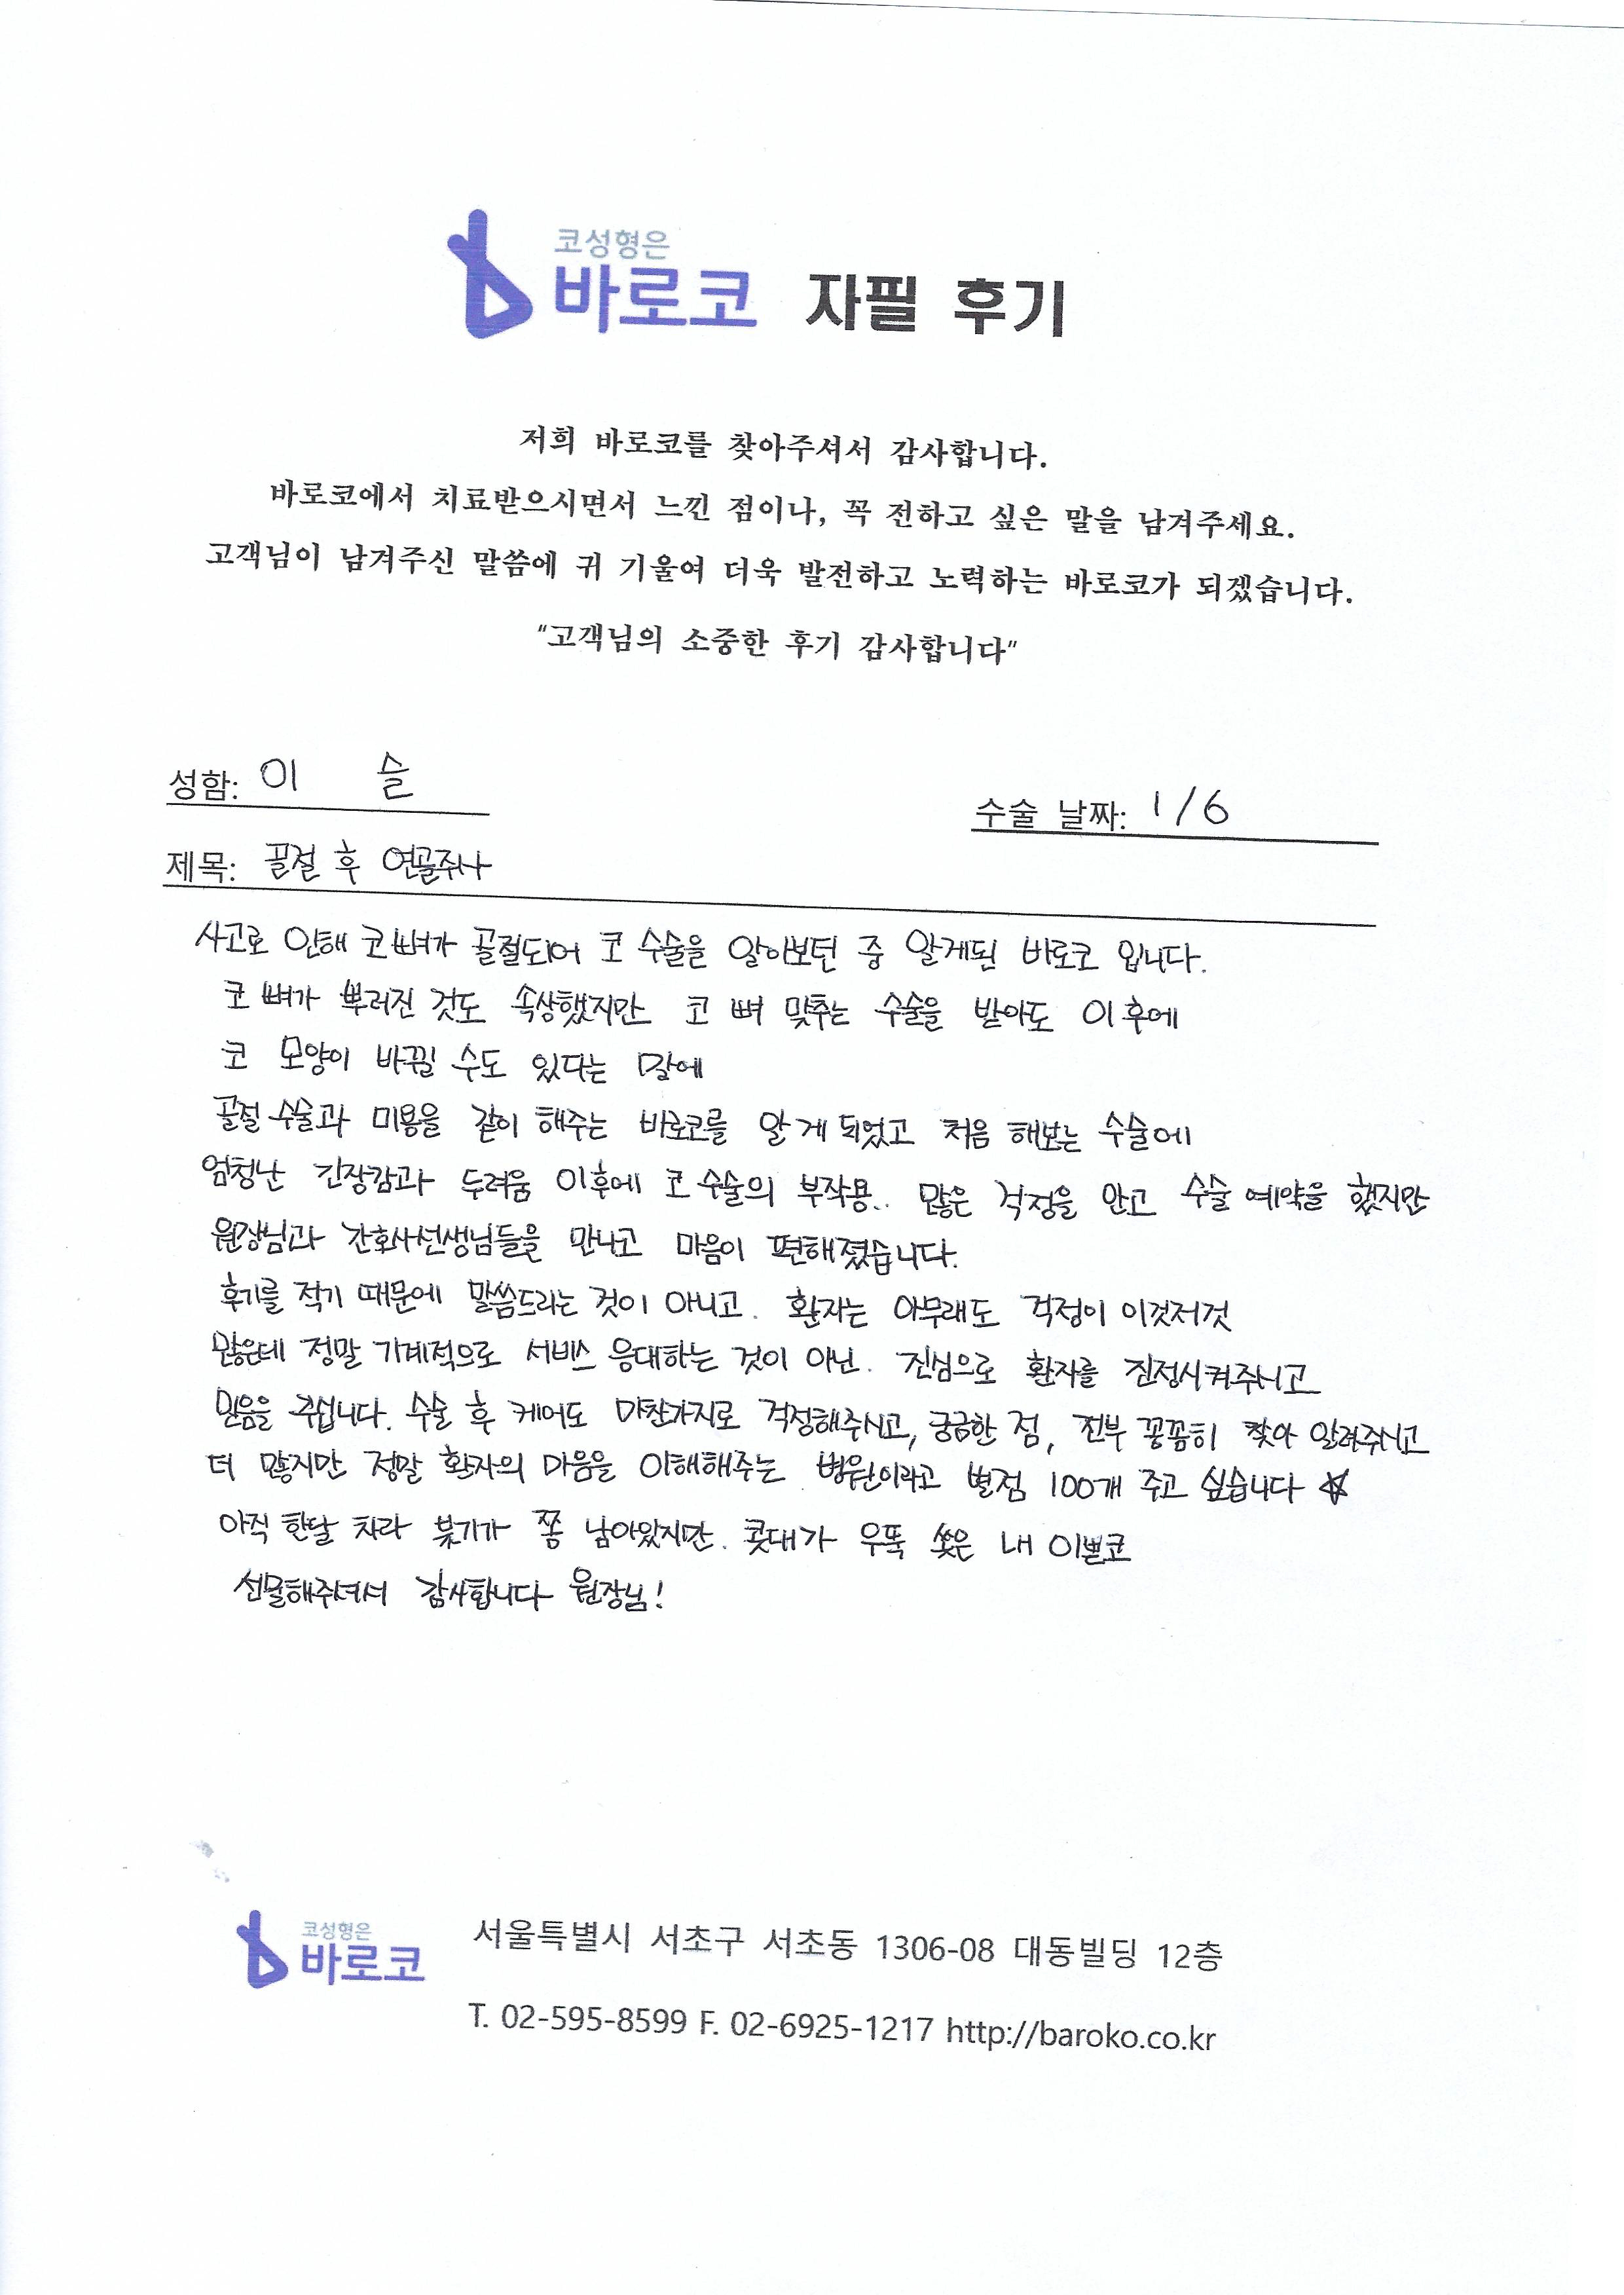 코성형은
바로코 자필 후기
저희 바로코를 찾아주셔서 감사합니다.
바로코에서 치료받으시면서 느낀 점이나, 꼭 전하고 싶은 말을 남겨주세요.
고객님이 남겨주신 말씀에 귀 기울여 더욱 발전하고 노력하는 바로코가 되겠습니다.
"고객님의 소중한 후기 감사합니다"
성함: 이 슬
수술 날짜: 1/6
제목: 골절 후
사고로 인해 코뼈가 골절되어 코 수술을 알아보던 중 알게된 바로코 입니다.
코 뼈가 뿌러진 것도 속상했지만 코 뼈 맞추는 수술을 받아도 이후에
코 모양이 바뀔 수도 있다는 말에
골절 수술과 미용을 같이 해주는 바로코를 알게 되었고 처음 해보는 수술에
엄청난 긴장감과 두려움 이후에 코 수술의 부작용.. 많은 걱정을 안고 수술 예약을 했지만
원장님과 간호사선생님들을 만나고 마음이 편해졌습니다.
후기를 적기 때문에 말씀드리는 것이 아니고. 환자는 아무래도 걱정이 이것저것
많은데 정말 기계적으로 서비스 응대하는 것이 아닌. 진심으로 환자를 진정시켜주시고
믿음을 주십니다. 수술 후 케어도 마찬가지로 걱정해주시고, 궁금한 점, 전부 꼼꼼히 찾아 알려주시고
더 많지만 정말 환자의 마음을 이해해주는 병원이라고 별점 100개 주고 싶습니다 ☆
아직 한달 차라 붓기가 쫌 남아있지만. 콧대가 우뚝 쏫은 내 이쁜코
선물해주셔서 감사합니다 원장님!
코성형은
바로코
서울특별시 서초구 서초동 1306-08 대동빌딩 12층
T. 02-595-8599 F. 02-6925-1217 http://baroko.co.kr